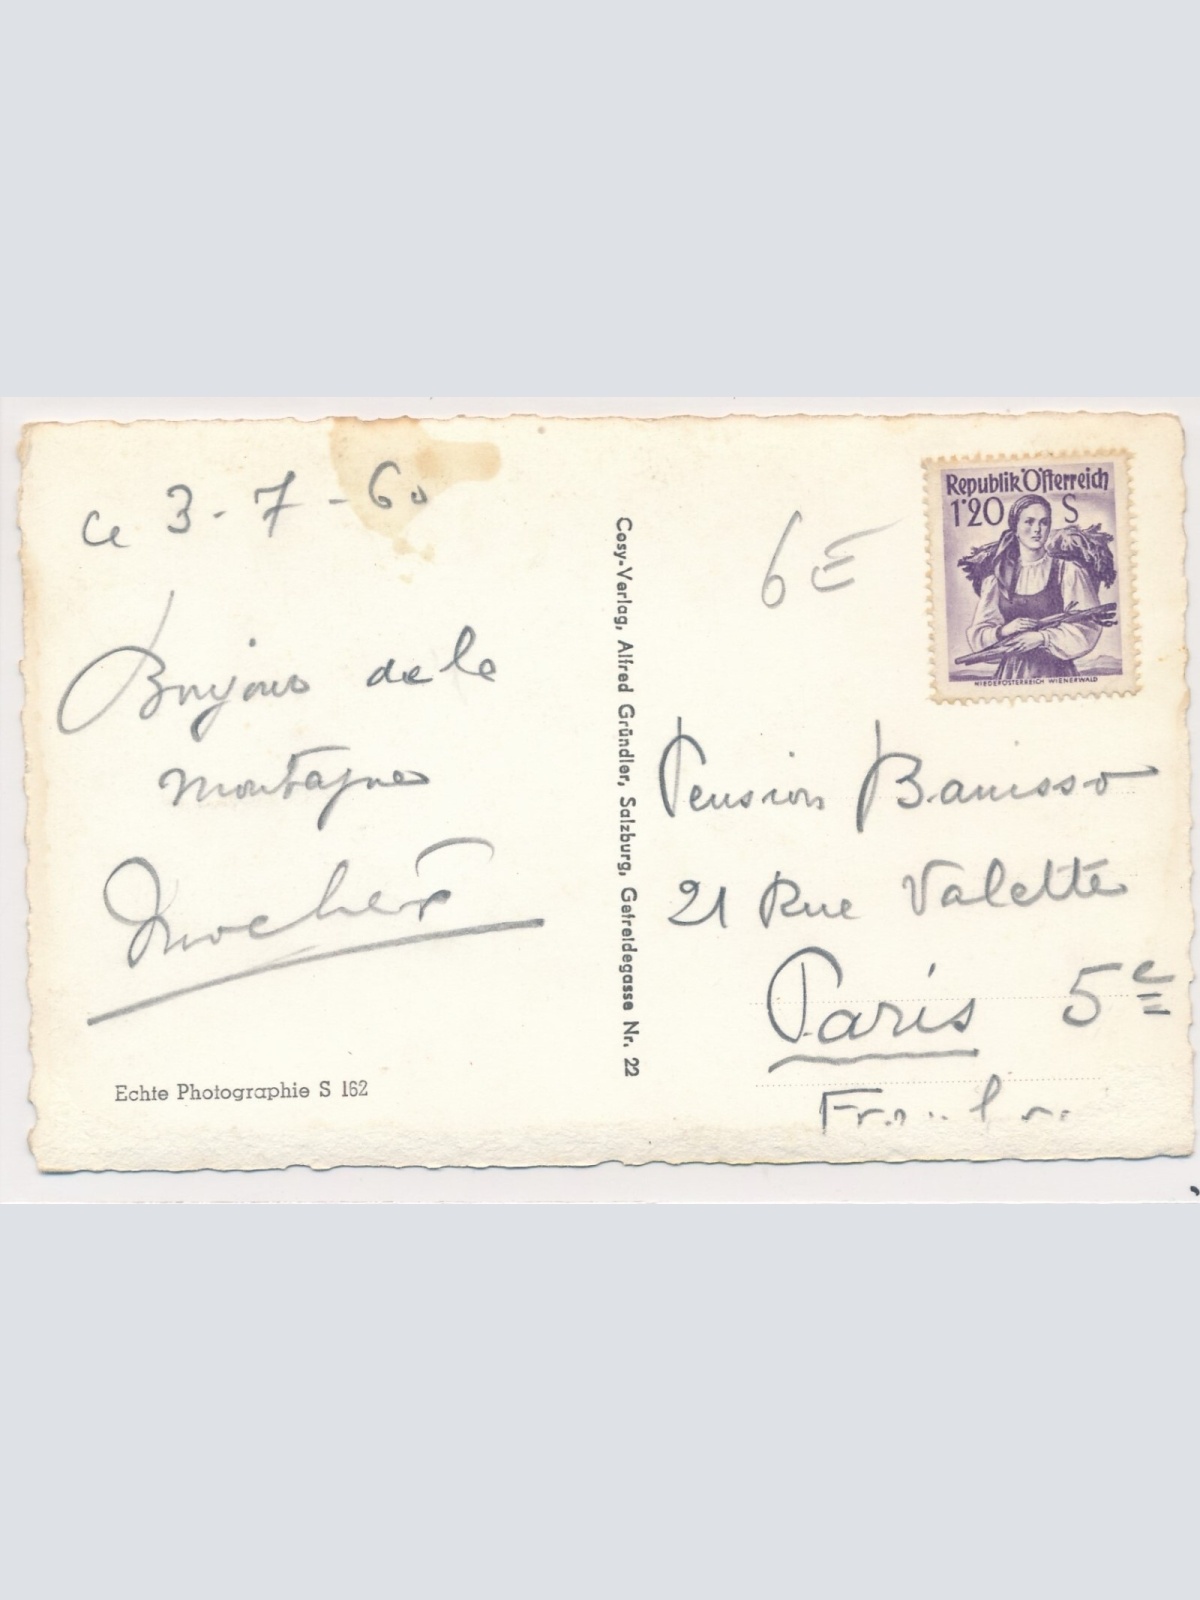 ce 3-7-60
Bonjour de la
montagne
Echte Photographie S 162
Cosy-Verlag, Alfred Gründler, Salzburg, Getreidegasse Nr. 22
6E
Republik Österreich
1·20 S
NIEDERÖSTERREICH WIENERWALD
Pension
21 Rue Valette
Paris 5e